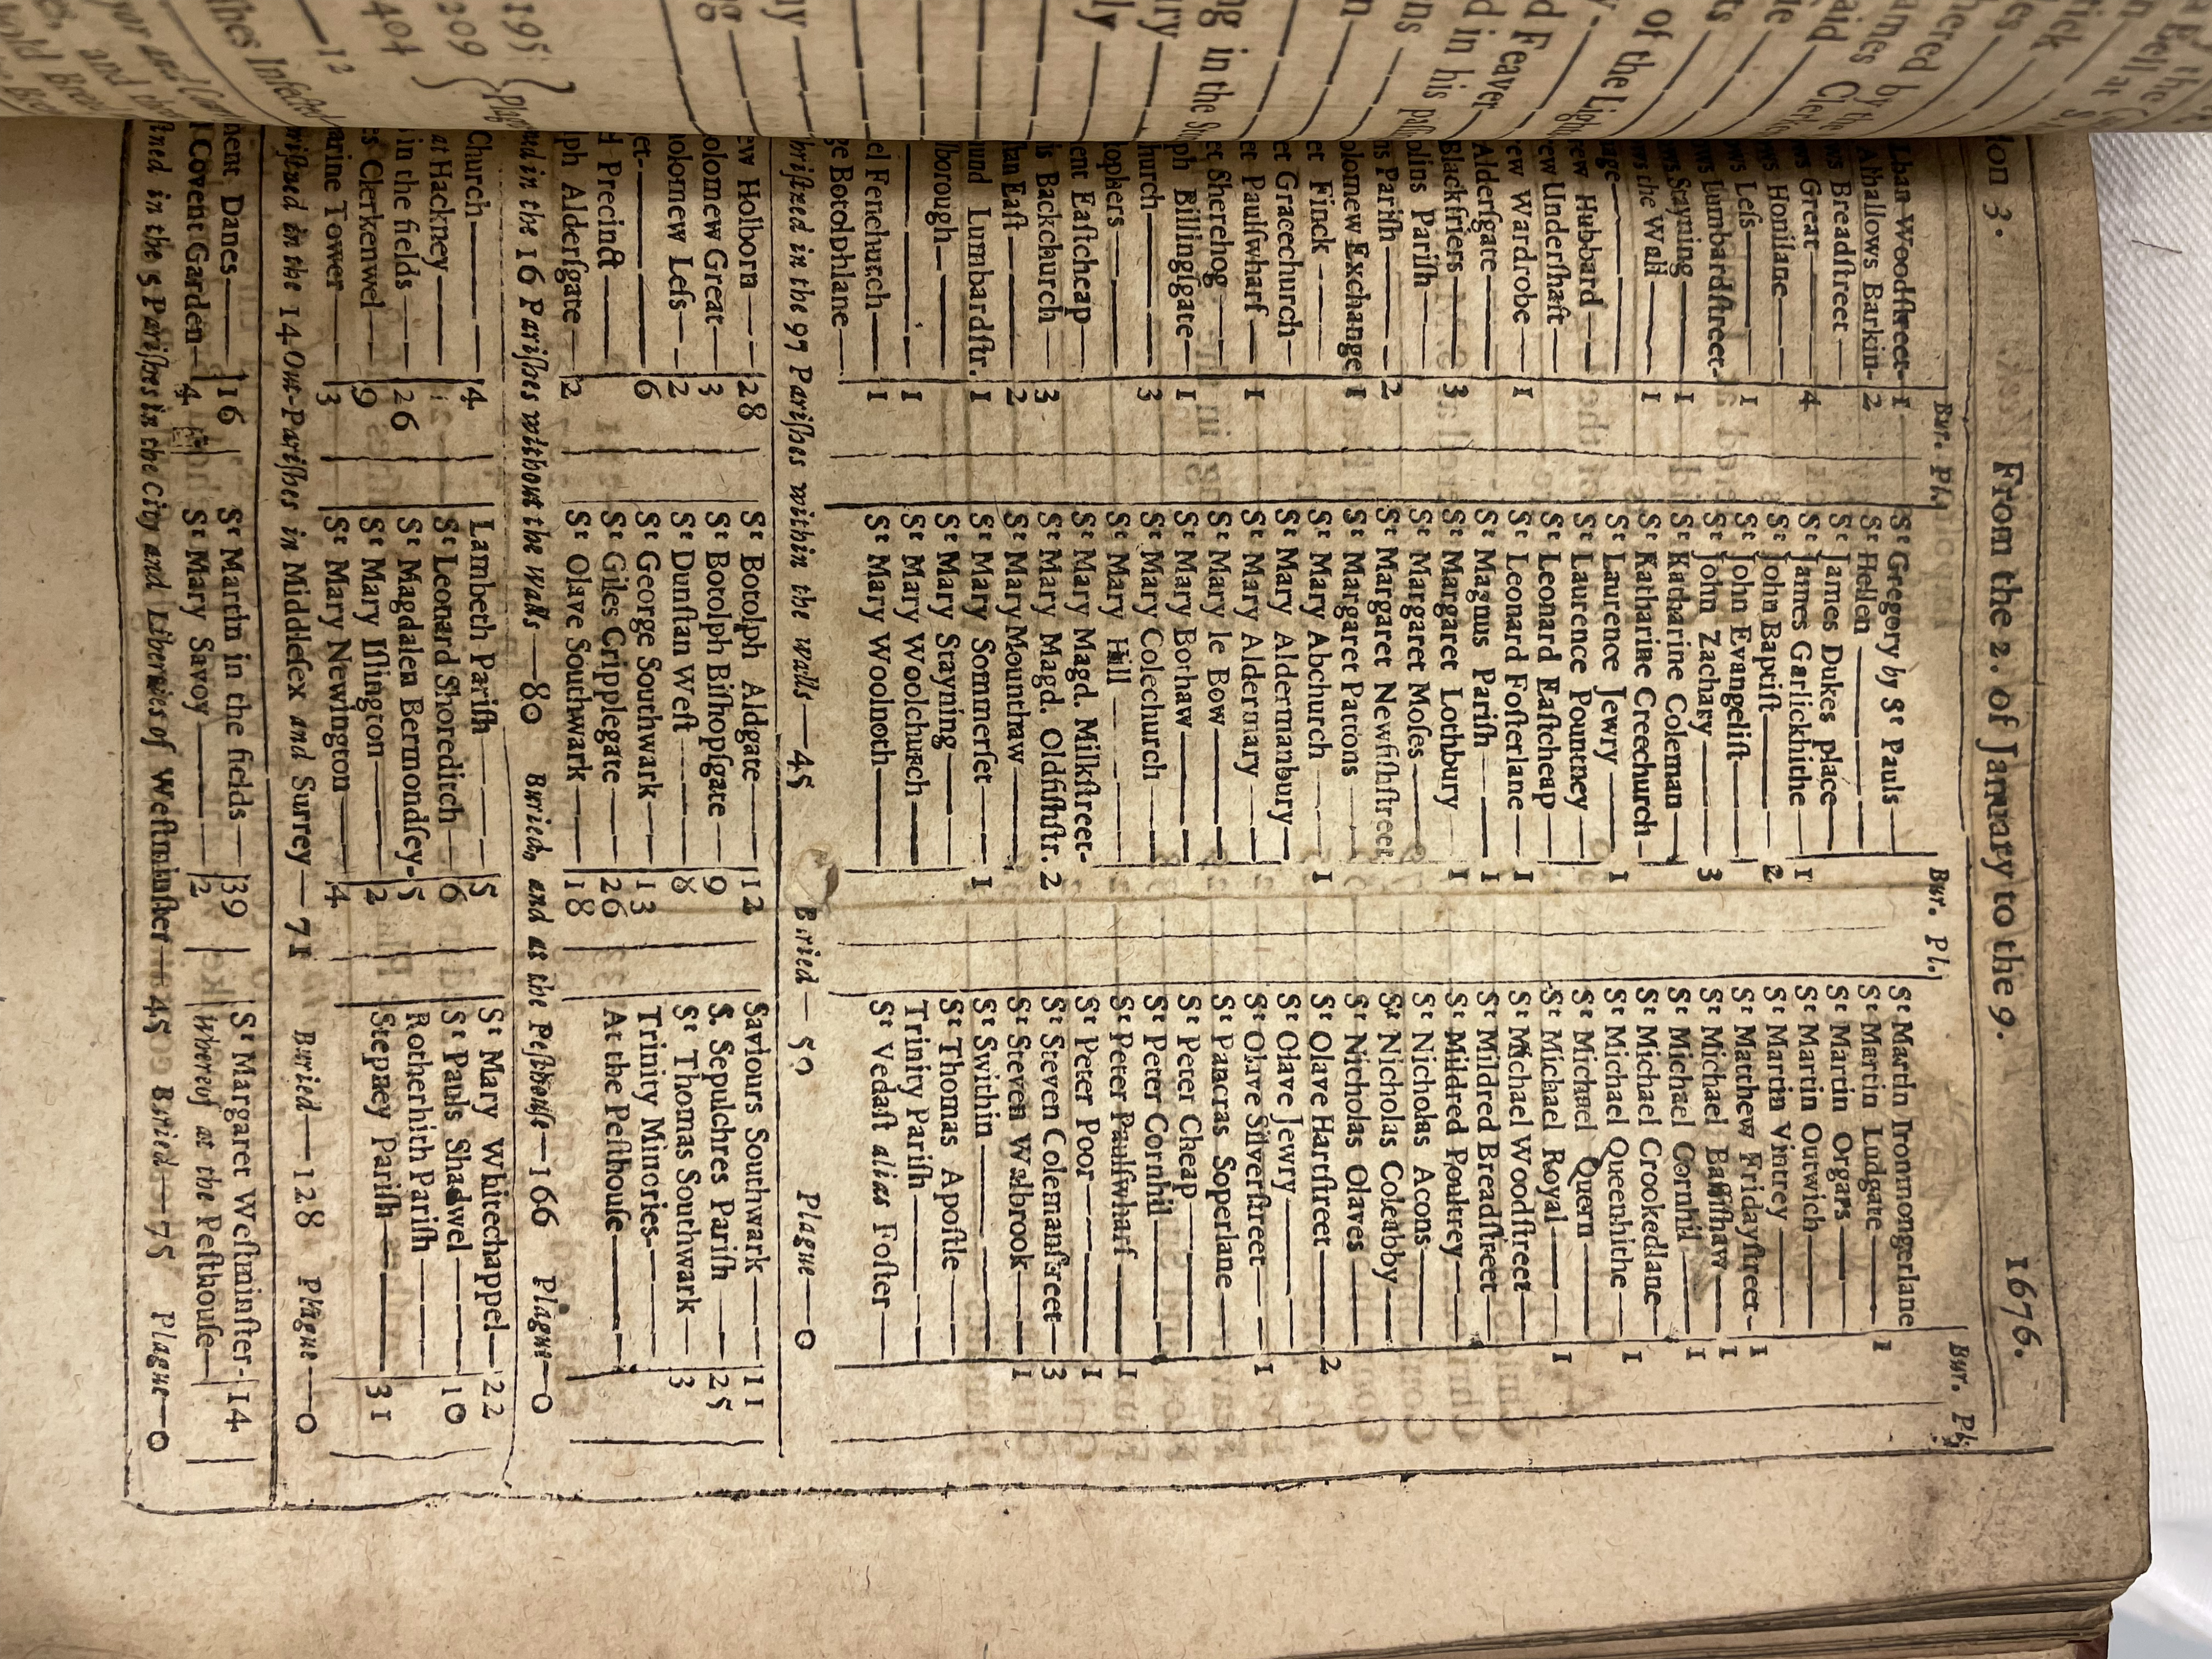 lon 3. From the 2. of January to the 9. 1676.
Bur. Pl. Bur. Pl. Bur. Pl.
lban Woodſtreet—1 Sᵗ Gregory by Sᵗ Pauls— Sᵗ Martin Ironmongerlane
Alhallows Barkin-2 Sᵗ Hellen — Sᵗ Martin Ludgate—1
ws Breadſtreet— Sᵗ James Dukes place— Sᵗ Martin Orgars—
ws Great—4 Sᵗ James Garlickhithe—1 Sᵗ Martin Outwich—
ws Honilane— Sᵗ John Baptiſt—2 Sᵗ Martin Vintrey—
ws Leſs—1 Sᵗ John Evangeliſt— Sᵗ Matthew Fridayſtreet-1
ws Lumbardſtreet- Sᵗ John Zachary—3 Sᵗ Michael Baſſiſhaw—1
ws Stayning—1 Sᵗ Katharine Coleman— Sᵗ Michael Cornhil—1
ws the Wall—1 Sᵗ Katharine Creechurch— Sᵗ Michael Crookedlane—
age— Sᵗ Laurence Jewry—1 Sᵗ Michael Queenhithe—1
ew Hubbard— Sᵗ Laurence Pountney— Sᵗ Michael Quern—
ew Underſhaft— Sᵗ Leonard Eaſtcheap— Sᵗ Michael Royal—1
ew Wardrobe—1 Sᵗ Leonard Foſterlane—1 Sᵗ Michael Woodſtreet—
Alderſgate— Sᵗ Magnus Pariſh—1 Sᵗ Mildred Breadſtreet—
Blackfriers—3 Sᵗ Margaret Lothbury—1 Sᵗ Mildred Poultrey—
olins Pariſh— Sᵗ Margaret Moſes— Sᵗ Nicholas Acons—
ns Pariſh—2 Sᵗ Margaret Newfiſhſtreet Sᵗ Nicholas Coleabby—
olomew Exchange 1 Sᵗ Margaret Pattons— Sᵗ Nicholas Olaves—
et Finck— Sᵗ Mary Abchurch—1 Sᵗ Olave Hartſtreet—2
et Gracechurch— Sᵗ Mary Aldermanbury— Sᵗ Olave Jewry—
et Paulſwharf—1 Sᵗ Mary Aldermary— Sᵗ Olave Silverſtreet—1
et Sherehog— Sᵗ Mary le Bow— Sᵗ Pancras Soperlane—
ph Billingſgate—1 Sᵗ Mary Bothaw— Sᵗ Peter Cheap—
hurch—3 Sᵗ Mary Colechurch— Sᵗ Peter Cornhil—
tophers— Sᵗ Mary Hill— Sᵗ Peter Paulſwharf—1
ent Eaſtcheap— Sᵗ Mary Magd. Milkſtreet- Sᵗ Peter Poor—1
is Backchurch—3 Sᵗ Mary Magd. Oldfiſhſtr. 2 Sᵗ Steven Colemanſtreet—3
ſtan Eaſt—2 Sᵗ Mary Mounthaw— Sᵗ Steven Walbrook—1
und Lumbardſtr. 1 Sᵗ Mary Sommerſet—1 Sᵗ Swithin—
lborough— Sᵗ Mary Stayning— Sᵗ Thomas Apoſtle—
—1 Sᵗ Mary Woolchurch— Trinity Pariſh—
el Fenchurch—1 Sᵗ Mary Woolnoth— Sᵗ Vedaſt alias Foſter—
ge Botolphlane—
hriſtned in the 97 Pariſhes within the walls—45 Buried—50 Plague—0
ew Holborn—28 Sᵗ Botolph Aldgate—12 Saviours Southwark—11
olomew Great—3 Sᵗ Botolph Biſhopſgate—9 S. Sepulchres Pariſh—25
olomew Leſs—2 Sᵗ Dunſtan Weſt—8 Sᵗ Thomas Southwark—3
et—6 Sᵗ George Southwark—13 Trinity Minories—
l Precinct— Sᵗ Giles Cripplegate—26 At the Peſthouſe—
lph Alderſgate—2 Sᵗ Olave Southwark—18
ned in the 16 Pariſhes without the walls—80 Buried, and at the Peſthouſe—166 Plague—0
Church—4 Lambeth Pariſh—5 Sᵗ Mary Whitechappel—22
at Hackney— Sᵗ Leonard Shoreditch—6 Sᵗ Pauls Shadwel—10
in the fields—26 Sᵗ Magdalen Bermondſey-5 Rotherhith Pariſh—
s Clerkenwel—9 Sᵗ Mary Iſlington—2 Stepney Pariſh—31
arine Tower—3 Sᵗ Mary Newington—4
riſtned in the 14 Out-Pariſhes in Middleſex and Surrey—71 Buried—128 Plague—0
ment Danes—16 Sᵗ Martin in the fields—39 Sᵗ Margaret Weſtminſter-14
Covent Garden—4 Sᵗ Mary Savoy—2 Whereof at the Peſthouſe—
ſtned in the 5 Pariſhes in the City and Liberties of Weſtminſter—45 Buried—75 Plague—0
Bell at
hered by the
ames
tick
aid Cle
of the Ligh
d Feaver
d in his
ng in the
195
209
404
Plag
hes Infected
—12